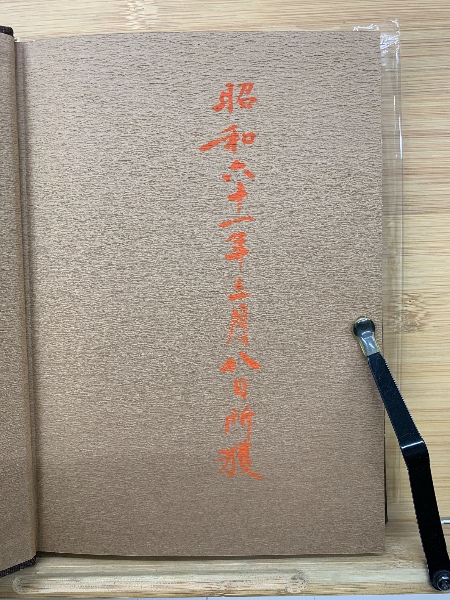 昭和六十一年三月八日所獲